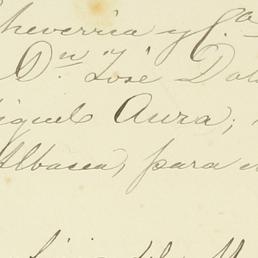 cheverria y Ca
Dn. José Dol
iguel Aura;
Albacea, para